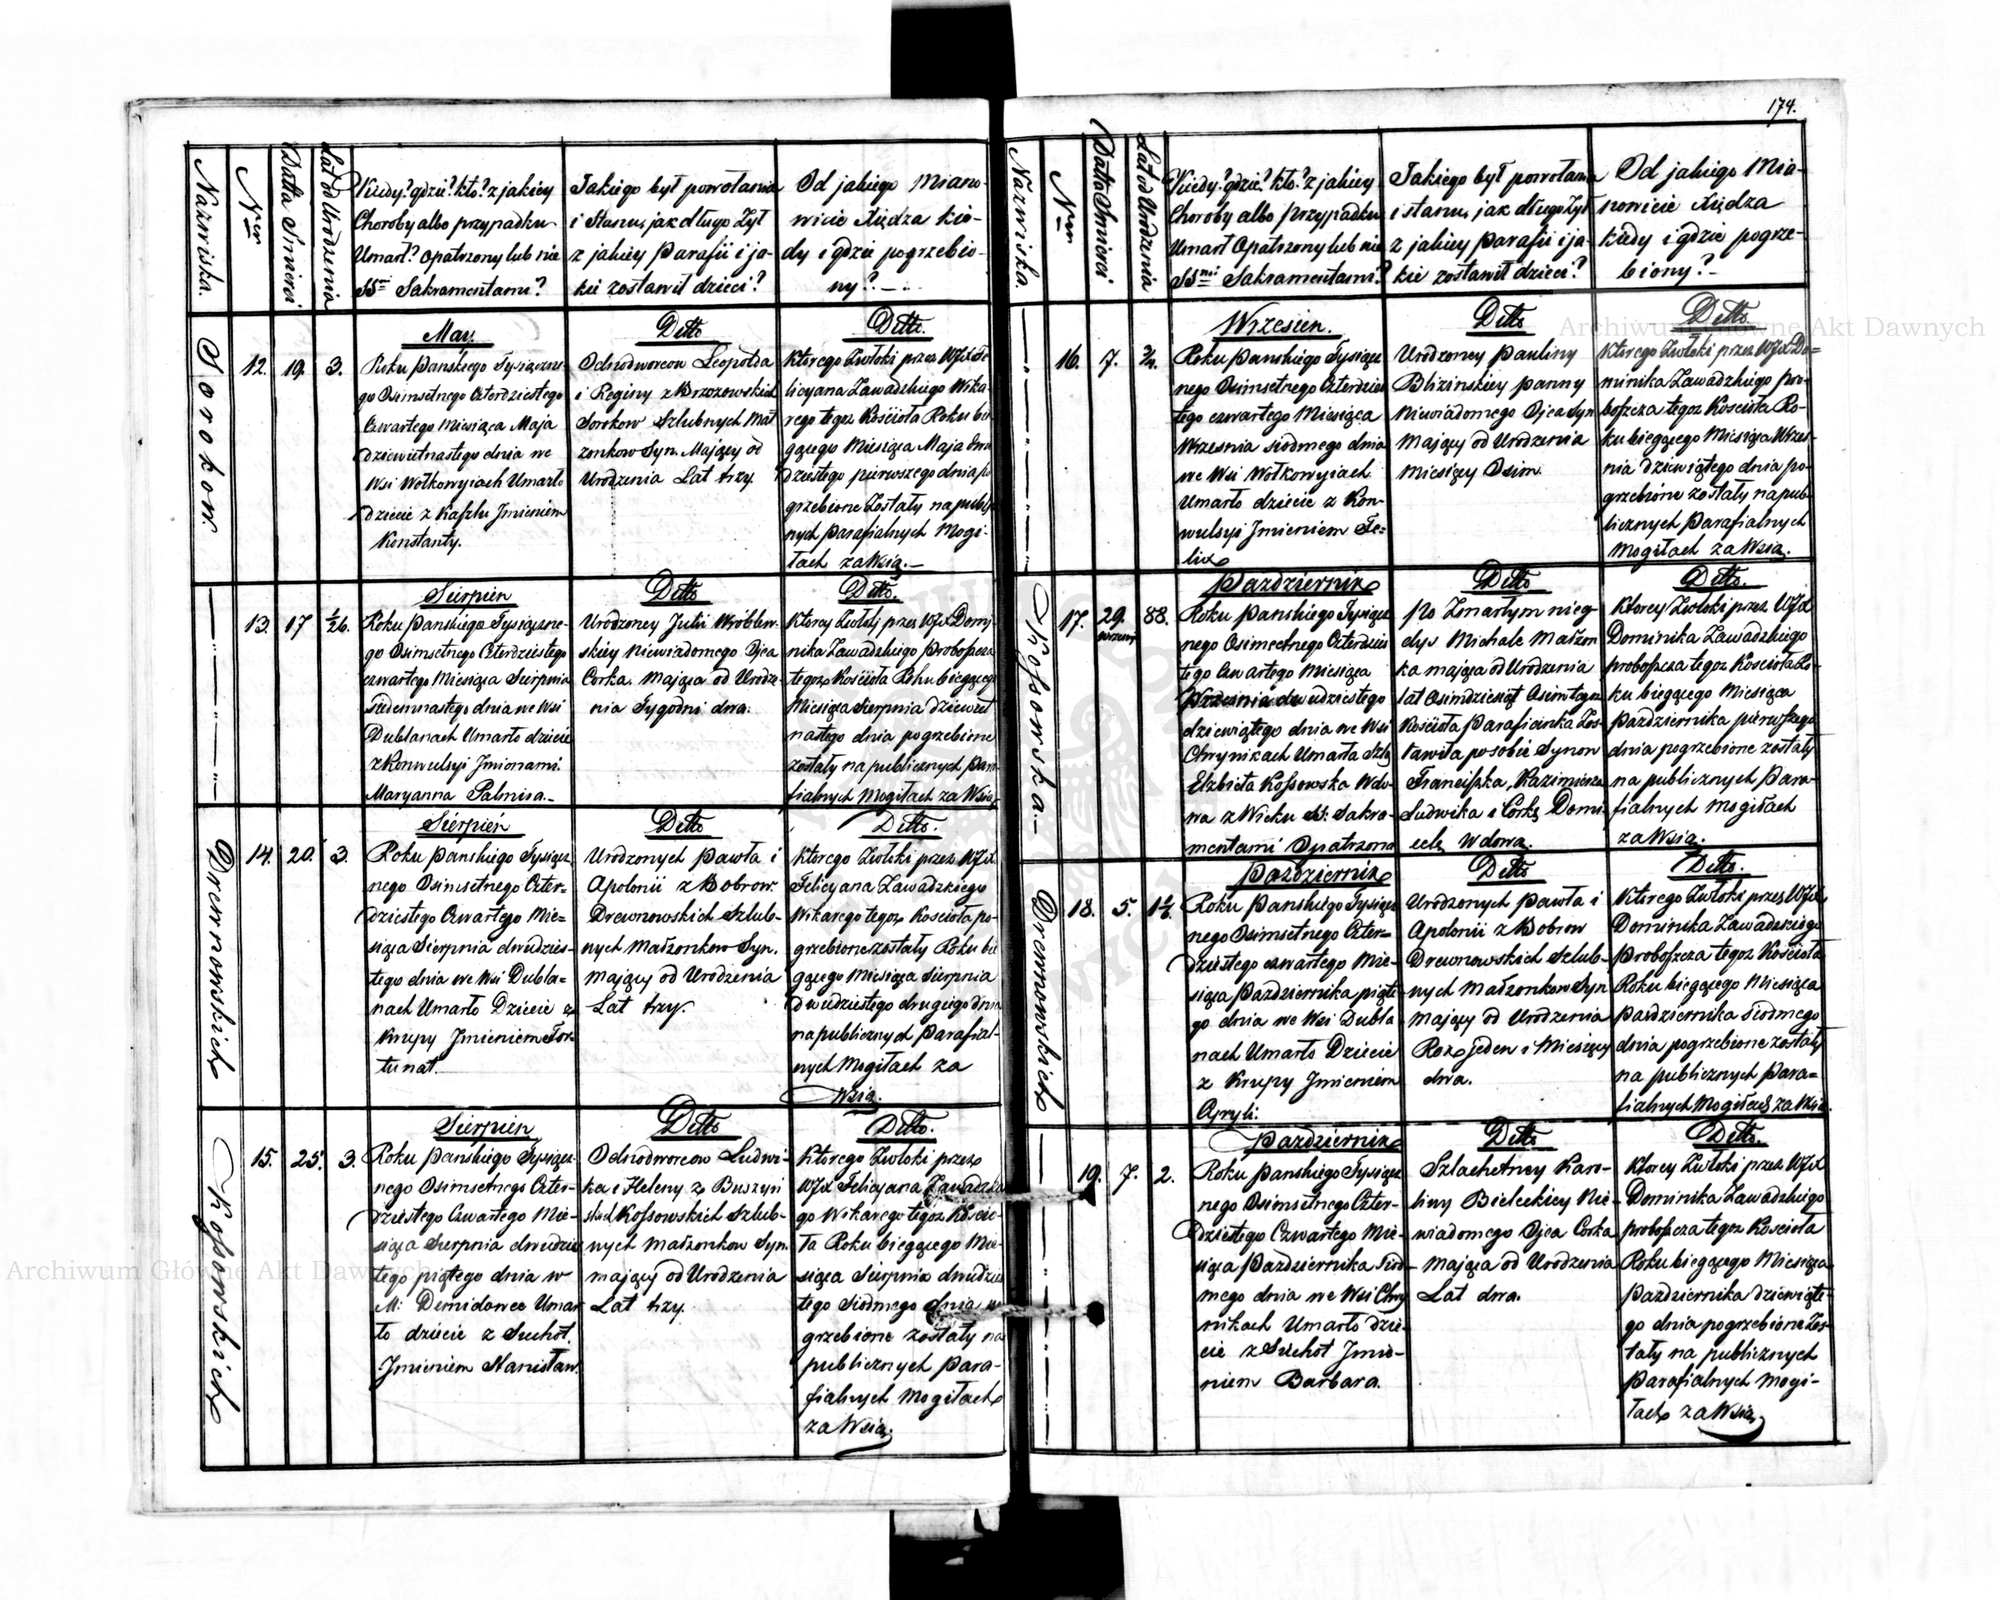 174.
Nazwiska.
Ner
Datta Smierci
Lat od Urodzenia
Kiedy? gdzie? kto? z jakiey
Choroby albo przypadku
Umarł? opatrzony lub nie
SSmi Sakramentami?
Jakiego był powołania
i Stanu, jak długo Żył
z jakiey Parafii i ja-
kie zostawił dzieci?
Od jakiego Miano-
wicie Xiędza kie-
dy i gdzie pogrzebio-
ny? —
Sorokow.
12.
19.
3.
May.
Roku Panskiego Tysiączne-
go Osimsetnego Czterdziestego
Czwartego Miesiąca Maja
dziewietnastego dnia we
Wsi Wołkowyiach Umarło
dziecie z Kaszlu Jmieniem
Konstanty.
Ditto
Odnodworcow Leopolda
i Reginy z Brzozowskich
Sorokow Szlubnych Mał
zonkow Syn. Maiący od
Urodzenia Lat trzy.
Ditto.
Ktorego Zwłoki przez WJX Fe
licyana Zawadzkiego Wika
rego tegoz Kościoła Roku bie
gącego Miesiąca Maja dwu
dziestego pierwszego dnia po
grzebione Zostały na publi
nych Parafialnych Mogi-
łach za Wsią.—
13.
17
1/26.
Sierpien
Roku Panskiego Tysiączne-
go Osimsetnego Czterdziestego
czwartego Miesiąca Sierpnia
Siedemnastego dnia we Wsi
Dublanach Umarło dziecie
z Konwulsyi Jmionami
Maryanna Palmira.—
Ditto
Urodzoney Julii Wróblew-
skiey Niewiadomego Ojca
Corka. Maiąca od Urodze-
nia Tygodni dwa.
Ditto.
Ktorey Zwłoki przez WJX Domi
nika Zawadzkiego Proboszcza
tegoz Kościoła Roku biegącego
Miesiąca Sierpnia dziewiet
nastego dnia pogrzebione
zostały na publicznych Para
fialnych Mogiłach za Wsią
Drewnowskich
14.
20.
3.
Sierpień
Roku Panskiego Tysiącz
nego Osimsetnego Czter-
dziestego Czwartego Mie-
siąca Sierpnia dwudzies-
tego dnia we Wsi Dubla-
nach Umarło Dziecie z
Krupy Jmieniem For
tunat.
Ditto
Urodzonych Pawła i
Apolonii z Bobrow
Drewnowskich Szlub-
nych Małzonkow Syn.
maiący od Urodzenia
Lat trzy.
Ditto.
Ktorego Zwłoki przez WJX
Felicyana Zawadzkiego
Wikarego tegoz Kościoła po-
grzebione zostały Roku bie
gącego Miesiąca Sierpnia
dwudziestego drugiego dnia
na publicznych Parafial-
nych Mogiłach za
Wsią.
Kossowskich
15.
25.
3.
Sierpien
Roku Panskiego Tysiącz-
nego Osimsetnego Czter-
dziestego Czwartego Mie-
siąca Sierpnia dwudzies
tego piątego dnia w
M: Demidowce Umar
ło dziecie z Suchot
Jmieniem Stanisław.
Ditto
Odnodworcow Ludwi-
ka i Heleny z Buszyń
skich Kossowskich Szlub-
nych Małzonkow Syn.
maiący od Urodzenia
Lat trzy.
Ditto.
Ktorego Zwłoki przez
WJX Felicyana Zawadzkie
go Wikarego tegoz Koscio-
ła Roku biegącego Mie-
siąca Sierpnia dwudzies
tego Siodmego dnia po
grzebione zostały na
publicznych Para-
fialnych Mogiłach
za Wsią.
Nazwiska.
Ner
Datta Smierci
Lat od Urodzenia
Kiedy? gdzie? kto? z jakiey
Choroby albo Przypadku
Umarł Opatrzony lub nie
SSmi Sakramentami?
Jakiego był powołania
i stanu, jak długo Żył
z jakiey Parafii i ja-
kie zostawił dzieci?
Od jakiego Mia-
nowicie Xiędza
kiedy i gdzie pogrze-
biony?—
16.
7.
Wrzesien.
Roku Panskiego Tysiącz
nego Osimsetnego Czterdzies
tego czwartego Miesiąca
Wrzesnia siodmego dnia
we Wsi Wołkowyiach
Umarło dziecie z Kon-
wulsyi Jmieniem Fe-
lix
Ditto
Urodzoney Pauliny
Blizinskiey Panny
Niewiadomego Ojca Syn
Maiący od Urodzenia
Miesięcy Osim.
Ditto
Ktorego Zwłoki przez WJX Do-
minika Zawadzkiego Pro-
boszcza tegoz Kościoła Ro-
ku biegącego Miesiąca Wrzes-
nia dziewiątego dnia po-
grzebione zostały na pub-
licznych Parafialnych
Mogiłach za Wsią.
Kossowska.—
17.
29.
wrzesnia
88.
Pazdziernik
Roku Panskiego Tysiącz
nego Osimsetnego Czterdzies
tego Czwartego Miesiąca
Wrzesnia dwudziestego
dziewiątego dnia we Wsi
Chrynikach Umarła Szla
Elzbieta Kossowska Wdo-
wa z Wieku SS: Sakra-
mentami Opatrzona
Ditto
Po Zmarłym nieg-
dyś Michale Małzon
ka maiąca od Urodzenia
lat Osimdziesiąt Osim tegoz
Kościoła Parafianka Zos-
tawiła po sobie Synow
Franciszka, Kazimierza
Ludwika i Corkę Domi-
celę Wdowa.
Ditto
Ktorey Zwłoki przez WJX
Dominika Zawadzkiego
proboszcza tegoz Kościoła Ro-
ku biegącego Miesiąca
Pazdziernika pierwszego
dnia pogrzebione zostały
na publicznych Para-
fialnych Mogiłach
za Wsią.
Drewnowskich
18.
5.
Pazdziernik
Roku Panskiego Tysiącz
nego Osimsetnego Czter-
dziestego czwartego Mie-
siąca Pazdziernika piąte-
go dnia we Wsi Dubla
nach Umarło Dziecie
z Krupy Jmieniem
Apryli:
Ditto
Urodzonych Pawła i
Apolonii z Bobrow
Drewnowskich Szlub-
nych Małzonkow Syn
maiący od Urodzenia
Rok jeden i Miesięcy
dwa.
Ditto.
Ktorego Zwłoki przez WJX
Dominika Zawadzkiego
Proboszcza tegoz Kościoła
Roku biegącego Miesiąca
Pazdziernika Siodmego
dnia pogrzebione zostały
na publicznych Para-
fialnych Mogiłach za Wsią.
19.
7.
2.
Pazdziernik
Roku Panskiego Tysiącz
nego Osimsetnego Czter-
dziestego Czwartego Mie-
siąca Pazdziernika Siod-
mego dnia we Wsi Chry
nikach Umarło dzie-
cie z Suchot Jmie-
niem Barbara.
Ditto
Szlachetney Karo-
liny Bieleckiey Nie-
wiadomego Ojca Corka
maiąca od Urodzenia
Lat dwa.
Ditto.
Ktorey Zwłoki przez WJX
Dominika Zawadzkiego
proboszcza tegoz Kościoła
Roku biegącego Miesiąca
Pazdziernika dziewiąte-
go dnia pogrzebione Zos-
tały na publicznych
Parafialnych Mogi-
łach za Wsią.
Archiwum Główne Akt Dawnych
Archiwum Główne Akt Dawnych